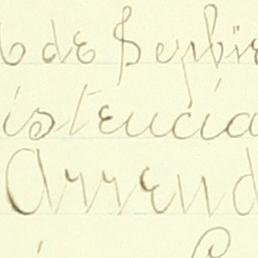 de Sepbre
istencia
Arrend